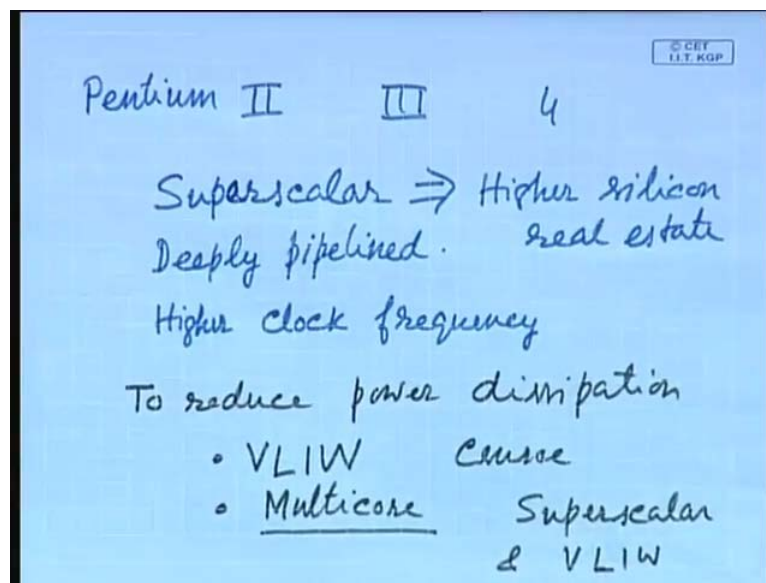 © CET
I.I.T. KGP
Pentium II III 4
Superscalar ⇒ Higher silicon
real estate
Deeply pipelined.
Higher clock frequency
To reduce power dissipation
• VLIW Crusoe
• Multicore Superscalar
& VLIW